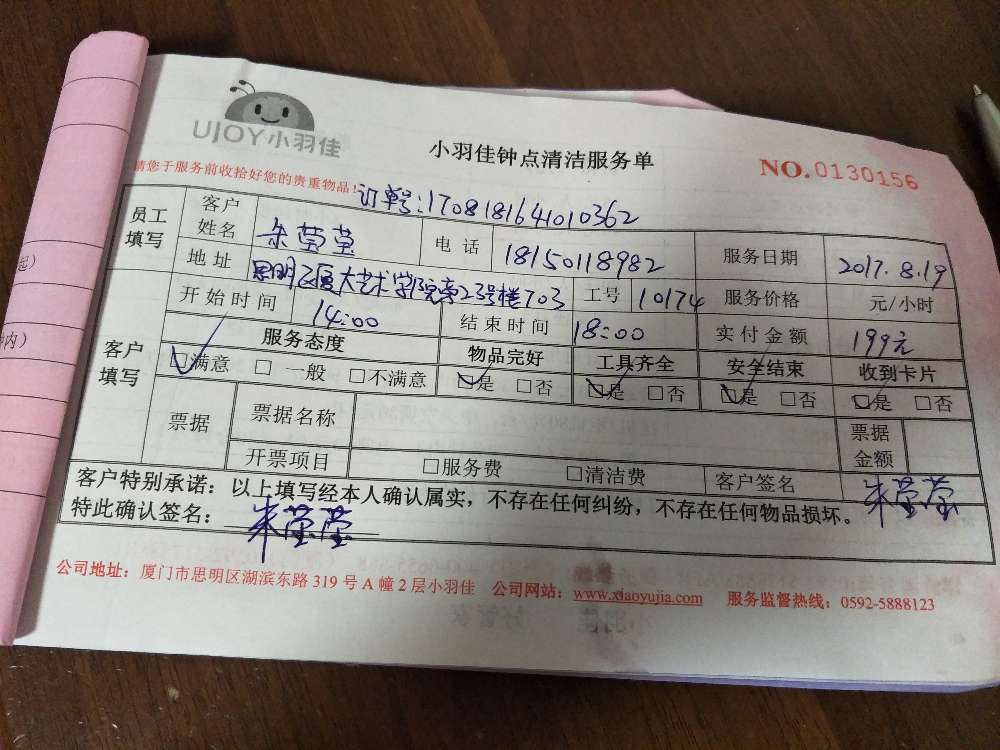 UJOY小羽佳
小羽佳钟点清洁服务单
NO.0130156
请您于服务前收拾好您的贵重物品!
订单号:1708181641010362
员工填写 客户姓名 朱莹莹 电话 18150118982 服务日期 2017.8.19
地址 思明区厦大艺术学院旁23号楼703 工号 10174 服务价格 元/小时
开始时间 14:00 结束时间 18:00 实付金额 199元
客户填写 服务态度 物品完好 工具齐全 安全结束 收到卡片
☑满意 □一般 □不满意 ☑是 □否 ☑是 □否 ☑是 □否 ☑是 □否
票据 票据名称 票据金额
开票项目 □服务费 □清洁费 客户签名 朱莹莹
客户特别承诺：以上填写经本人确认属实，不存在任何纠纷，不存在任何物品损坏。
特此确认签名： 朱莹莹
公司地址：厦门市思明区湖滨东路 319 号 A 幢 2 层小羽佳 公司网站：www.xiaoyujia.com 服务监督热线：0592-5888123
起)
内)